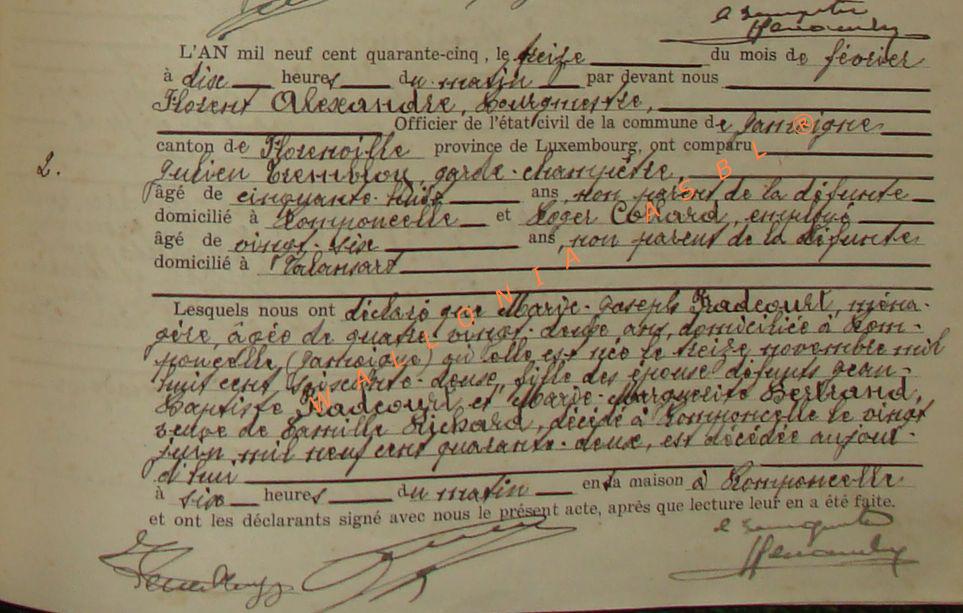 L'AN mil neuf cent quarante-cinq, le treize du mois de février
à dix heures du matin par devant nous
Florent Alexandre, bourgmestre,
Officier de l'état civil de la commune de Jamoigne
canton de Florenville province de Luxembourg, ont comparu
2.
Julien garde-champêtre,
âgé de cinquante-huit ans, non parent de la défunte
domicilié à Romponcelle et Roger Collard, employé
âgé de vingt-six ans, non parent de la défunte
domicilié à Valansart
Lesquels nous ont déclaré que Marie-Joseph Fradcourt, ména-
gère, âgée de quatre vingt-deux ans, domiciliée à Rom-
poncelle (Jamoigne) qu'elle est née le treize novembre mil
huit cent soixante-deux, fille des épouse défunts Jean-
Baptiste Fradcourt et Marie-Marguerite Bertrand,
veuve de Camille Richard, décédé à Romponcelle le vingt
juin mil neuf cent quarante-deux, est décédée aujour-
d'hui
à six heures du matin en sa maison à Romponcelle
et ont les déclarants signé avec nous le présent acte, après que lecture leur en a été faite.
WALLONIA ASBL ®